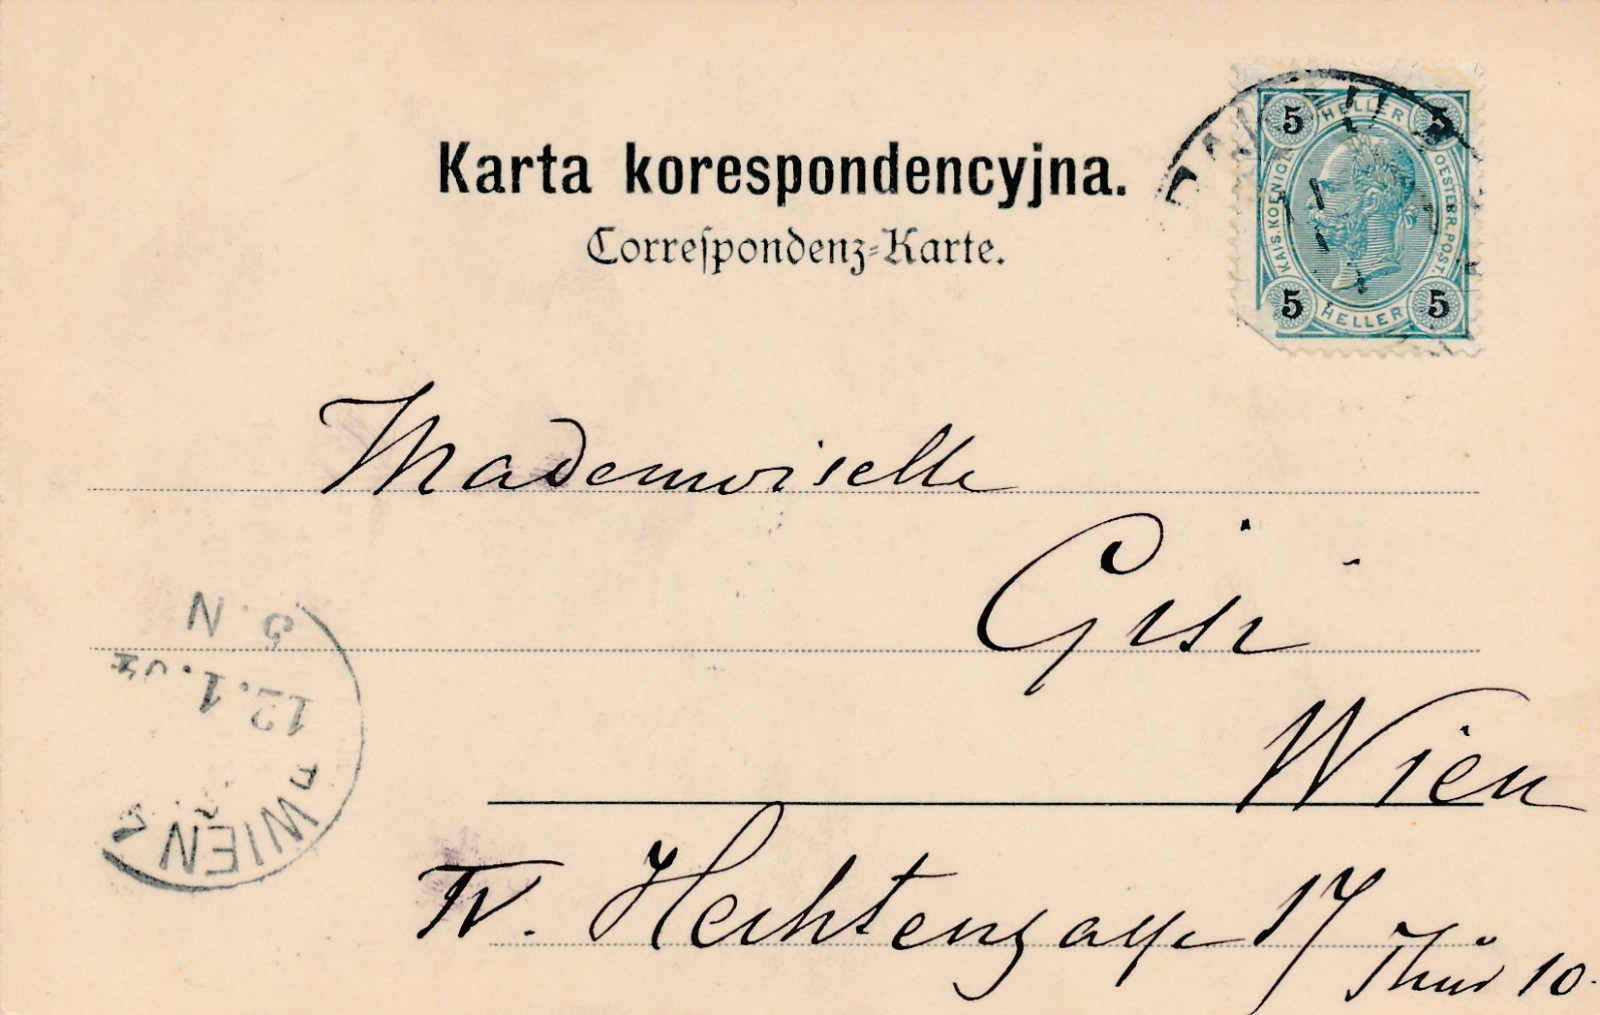 Karta korespondencyjna.
Correſpondenz-Karte.
5 HELLER 5
KAIS. KOENIGL. OESTERR. POST.
5 HELLER 5
Mademoiselle
Gisi
Wien
IV. Hechtengasse 17
Thür 10.
WIEN
12.1.04
5.N